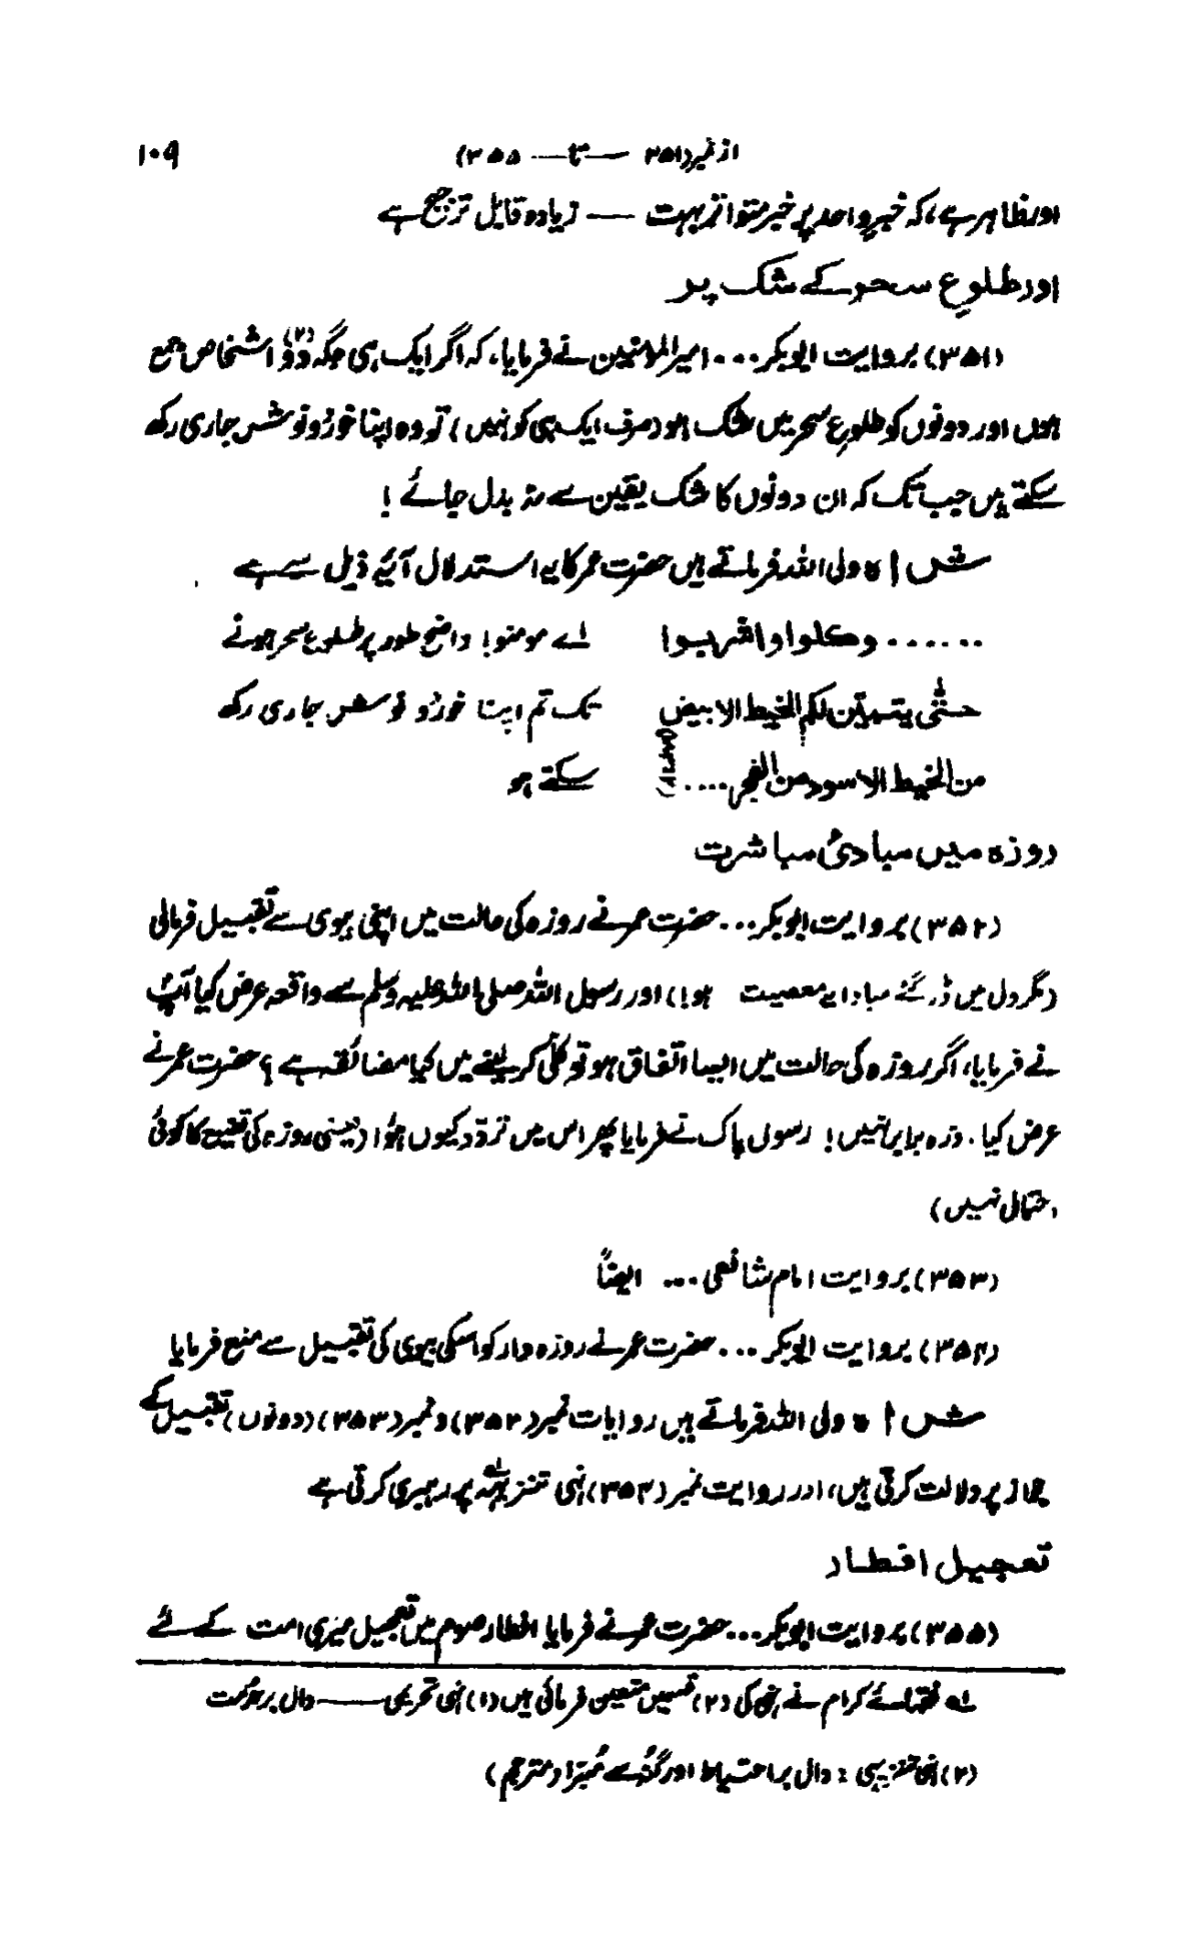 از نمبر(۳۵۱ — تا — ۳۵۵) ۱۰۹
اور ظاہر ہے، کہ خبرِ واحد پر خبر متواتر بہت — زیادہ قابل ترجیح ہے
اور طلوعِ سحر کے شک پر
(۳۵۱) بروایت ابوبکر... امیرالمومنین نے فرمایا، کہ اگر ایک ہی جگہ دو(۲) اشخاص جمع
ہوں اور دونوں کو طلوعِ سحر میں شک ہو (صرف ایک ہی کو نہیں) تو وہ اپنا خورد و نوش جاری رکھ
سکتے ہیں جب تک کہ ان دونوں کا شک یقین سے نہ بدل جائے!
ش ا ہ ولی اللہ فرماتے ہیں حضرت عمر کا یہ استدلال آیۂ ذیل سے ہے
...... وکلوا واشربوا اے مومنو! واضح طور پر طلوع سحر ہونے
حتّٰی یتبیّن لکم الخیط الابیض تک تم اپنا خورد و نوش جاری رکھ
من الخیط الاسود من الفجر.... سکتے ہو
روزہ میں مبادئ مباشرت
(۳۵۲) بروایت ابوبکر... حضرت عمر نے روزہ کی حالت میں اپنی بیوی سے تقبیل فرمائی
(مگر دل میں ڈر گئے مبادا یہ معصیت ہو!) اور رسول اللہ صلی اللہ علیہ وسلم سے واقعہ عرض کیا آپؐ
نے فرمایا، اگر روزہ کی حالت میں ایسا اتفاق ہو تو کلّی کر لینے میں کیا مضائقہ ہے؟ حضرت عمر نے
عرض کیا. ذرہ برابر نہیں! رسول پاک نے فرمایا پھر اس میں تردّد کیوں ہوا (یعنی روزہ کی کا کوئی
احتمال نہیں)
(۳۵۳) بروایت امام شافعی... ایضاً
(۳۵۴) بروایت ابوبکر... حضرت عمر نے روزہ دار کو اسکی بیوی کی تقبیل سے منع فرمایا
ش ا ہ ولی اللہ فرماتے ہیں روایات نمبر(۳۵۲) و نمبر(۳۵۳) (دونوں) تقبیل کے
جواز پر دلالت کرتی ہیں، اور روایت نمبر (۳۵۴) نہی تنزیہہ پر رہبری کرتی ہے
تعجیل افطار
(۳۵۵) بروایت ابوبکر... حضرت عمر نے فرمایا افطار صوم میں تعجیل میری امت کے لئے
لہ فقہائے کرام نے نہی کی (۲) قسمیں متعین فرمائی ہیں (۱) نہی تحریمی — دال بر حرمت
(۲) نہی تنزیہی : دال بر احتیاط اور گنہ سے مُبرّا (مترجم)